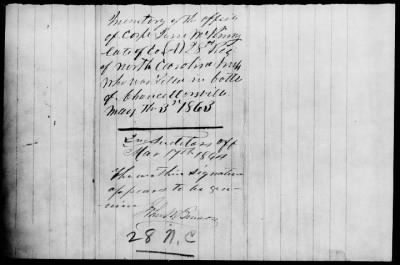 Inventory of the effects
of Corpl Jesse McKinny
late of Co D 28th Reg
of North Carolina Infy
who was killed in battle
of Chancellorsville
May the 3rd 1863
2nd Auditors off
Mar 17th 1864
The within signature
appears to be gen-
uine
28 N.C